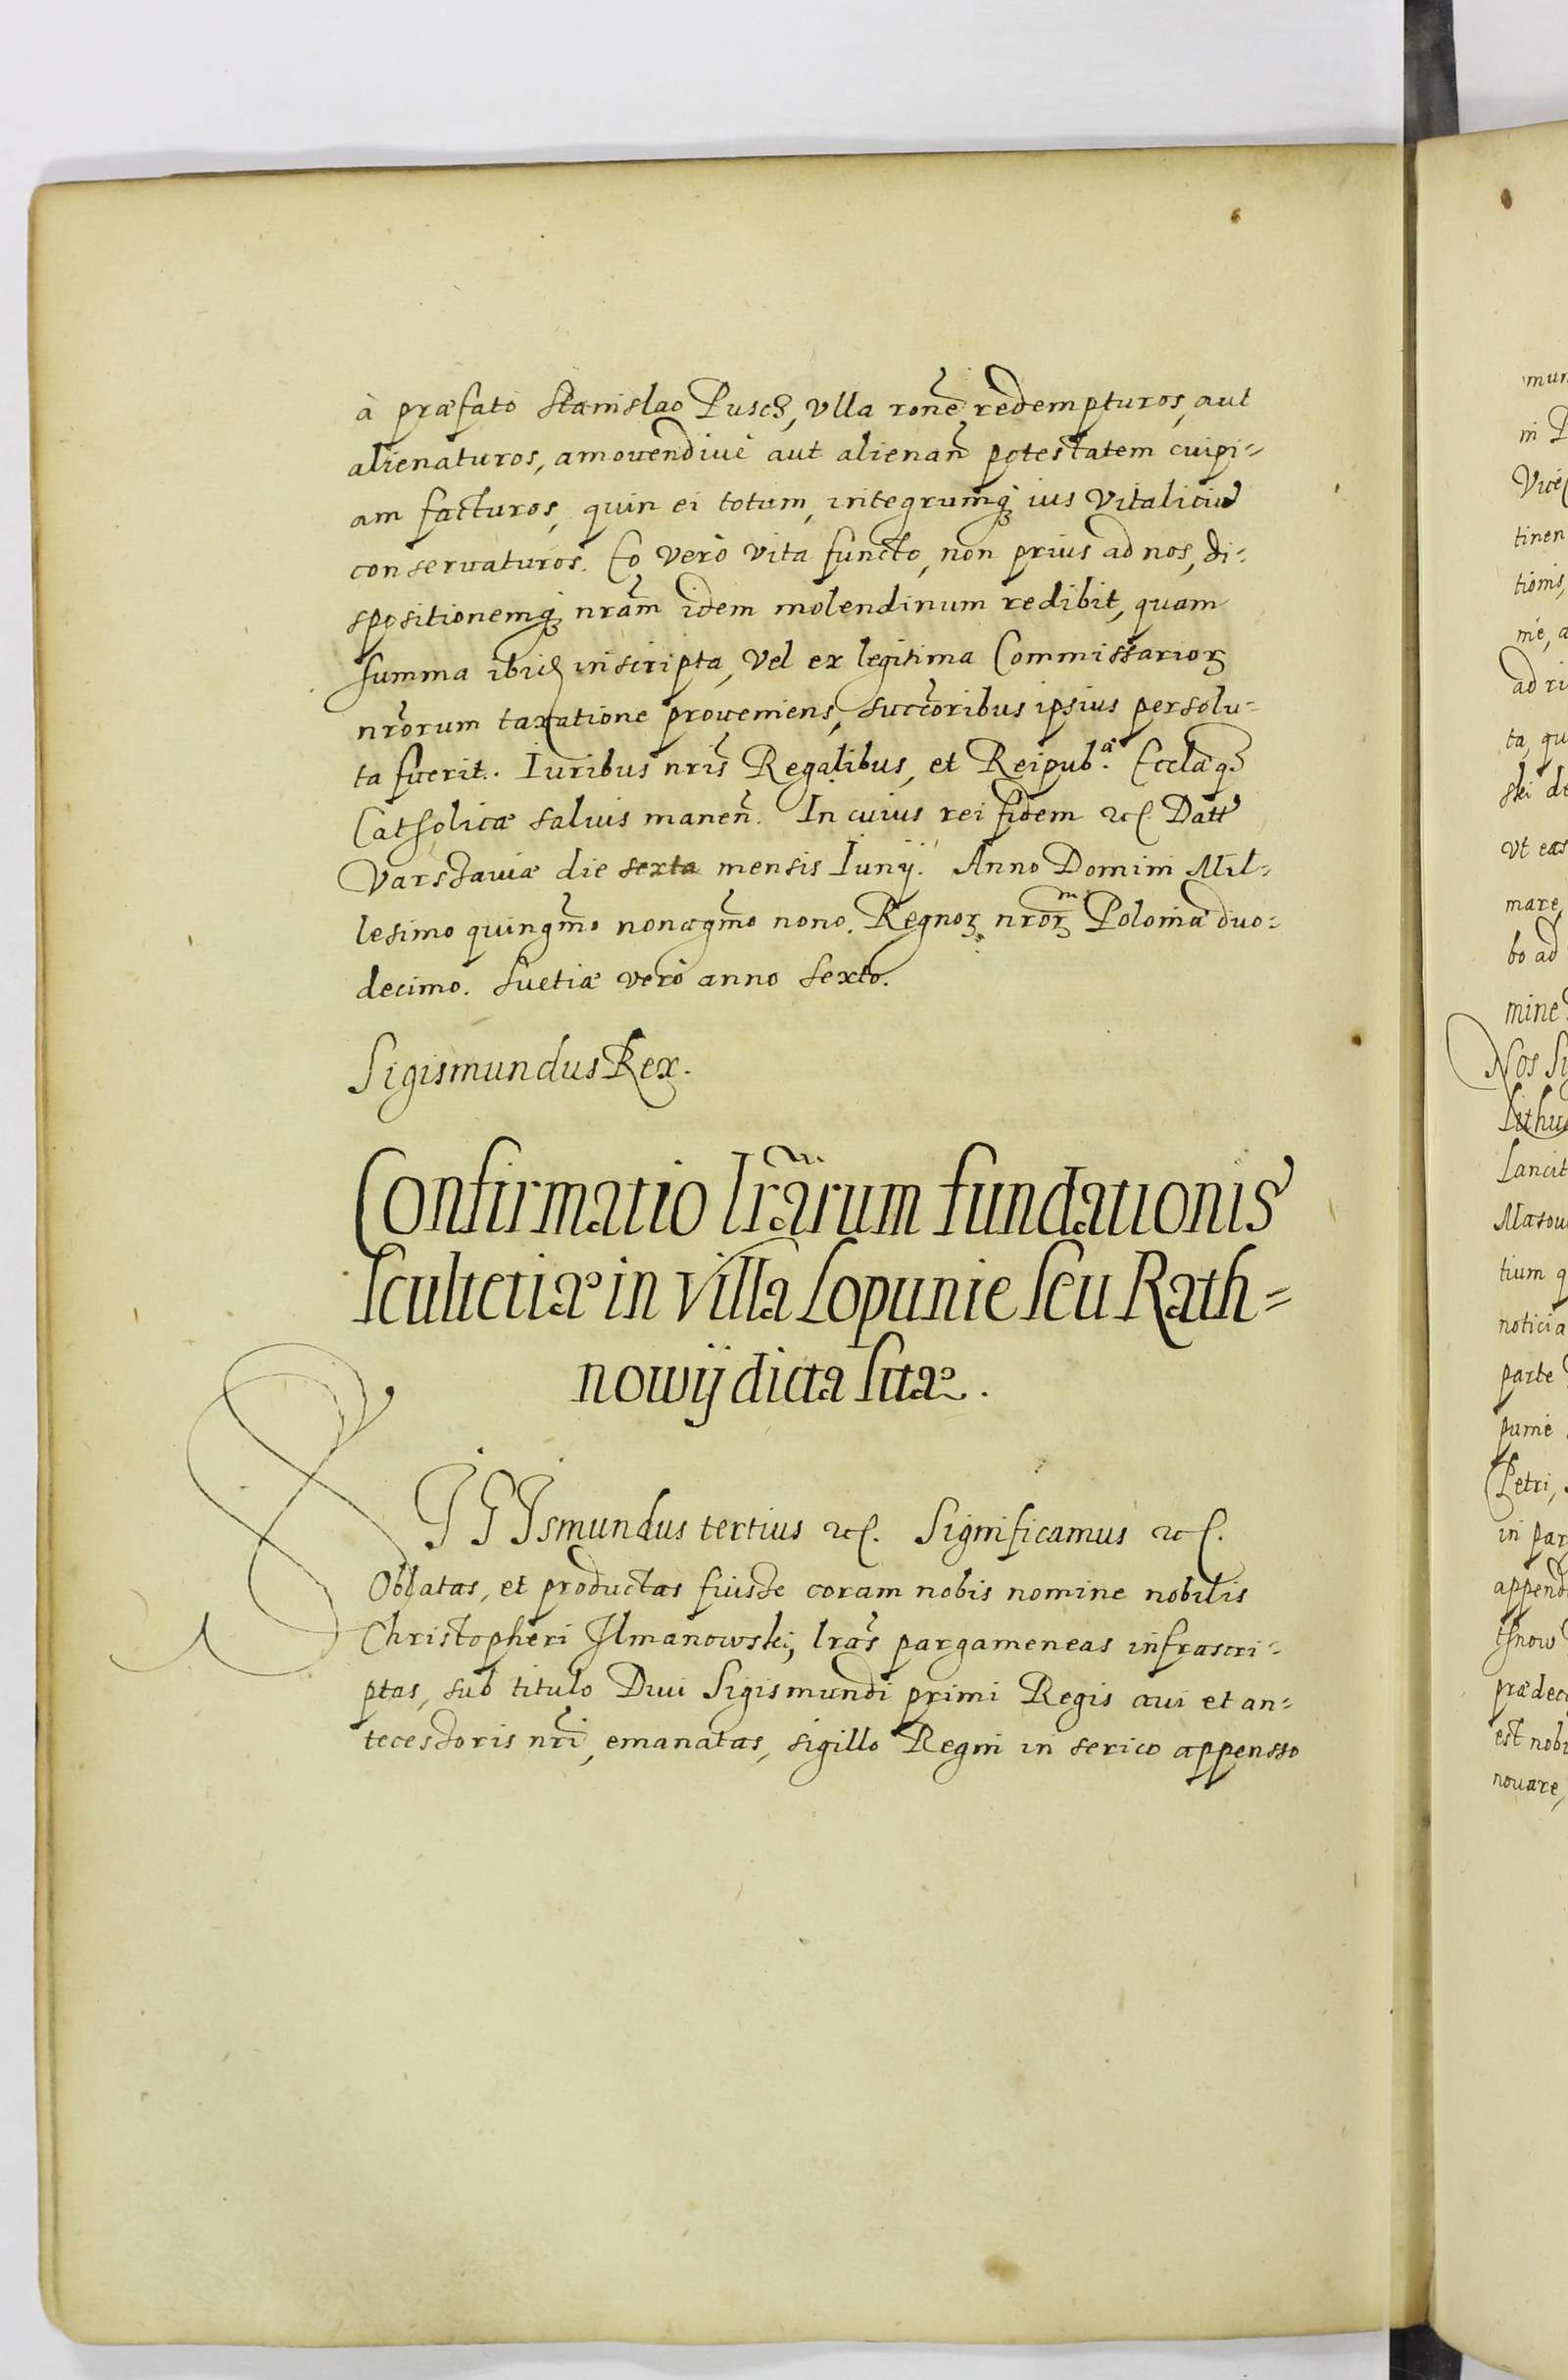 à præfato Stanislao Pusch, vlla rone redempturos, aut
alienaturos, amouendiuè aut alienan̄ potestatem cuipi-
am facturos, quin ei totum, integrumq ius Vitalitiū
conseruaturos. Eo verò vita functo, non prius ad nos, di-
spositionemq nram idem molendinum redibit, quam
summa ibid inscripta, vel ex legitima Commissarioꝝ
nrorum taxatione proueniens, succoribus ipsius persolu-
ta fuerit. Iuribus nris Regalibus, et Reipub.æ Ecclæq
Catholicæ saluis manen̄. In cuius rei fidem etc. Datt
Varssauiæ die sexta mensis Iunij. Anno Domini Mil-
lesimo quingmo nonagmo nono. Regnoꝝ nroꝝ Poloniæ duo-
decimo. Suetiæ verò anno sexto.
Sigismundus Rex.
Confirmatio lrarum fundationis
scultetiæ in villa Lopunie seu Rath-
nowij dicta sitæ.
SIGIsmundus tertius etc. Significamus etc.
Oblatas, et productas fuisse coram nobis nomine nobilis
Christopheri Ilmanowski, lras pargameneas infrascri-
ptas, sub titulo Diui Sigismundi primi Regis aui et an-
tecessoris nri, emanatas, sigillo Regni in serico appensso
mun
in P
Vice
tinen
tionis,
mè, a
ad ri
ta, qu
ski de
vt eas
mare,
bo ad
mine
Nos Si
Lithu
Lancit
Masou
tium q
noticia
parte
punie
Petri,
in par
append
thnow
prædec
est nobi
nouare,